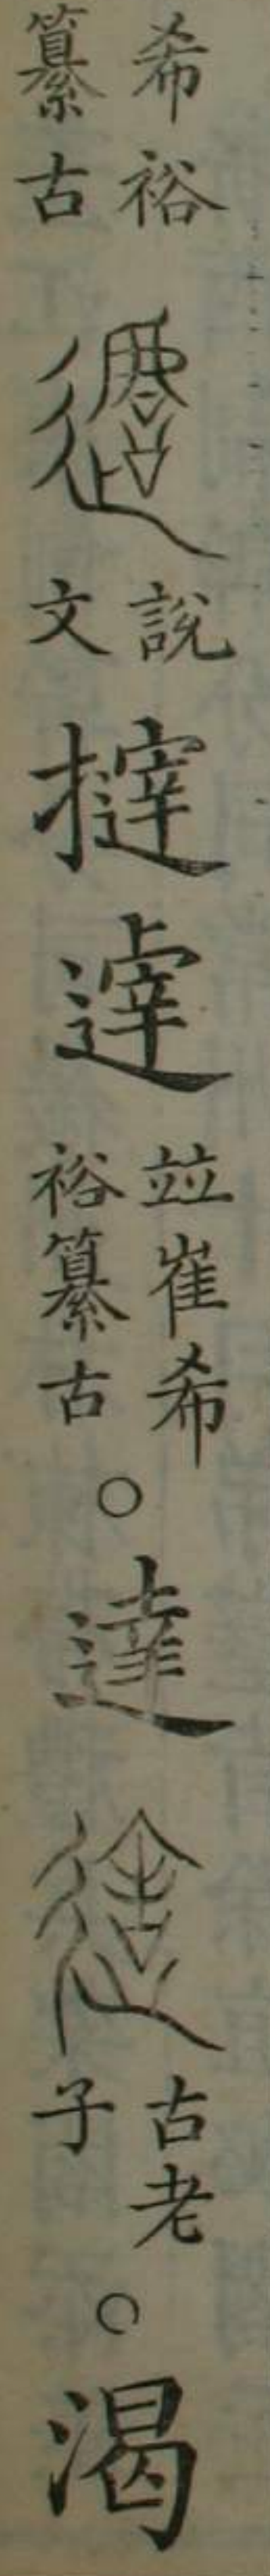 希裕
纂古
說
文
撻
並崔希
裕纂古
○
達
古老
子
○
渴